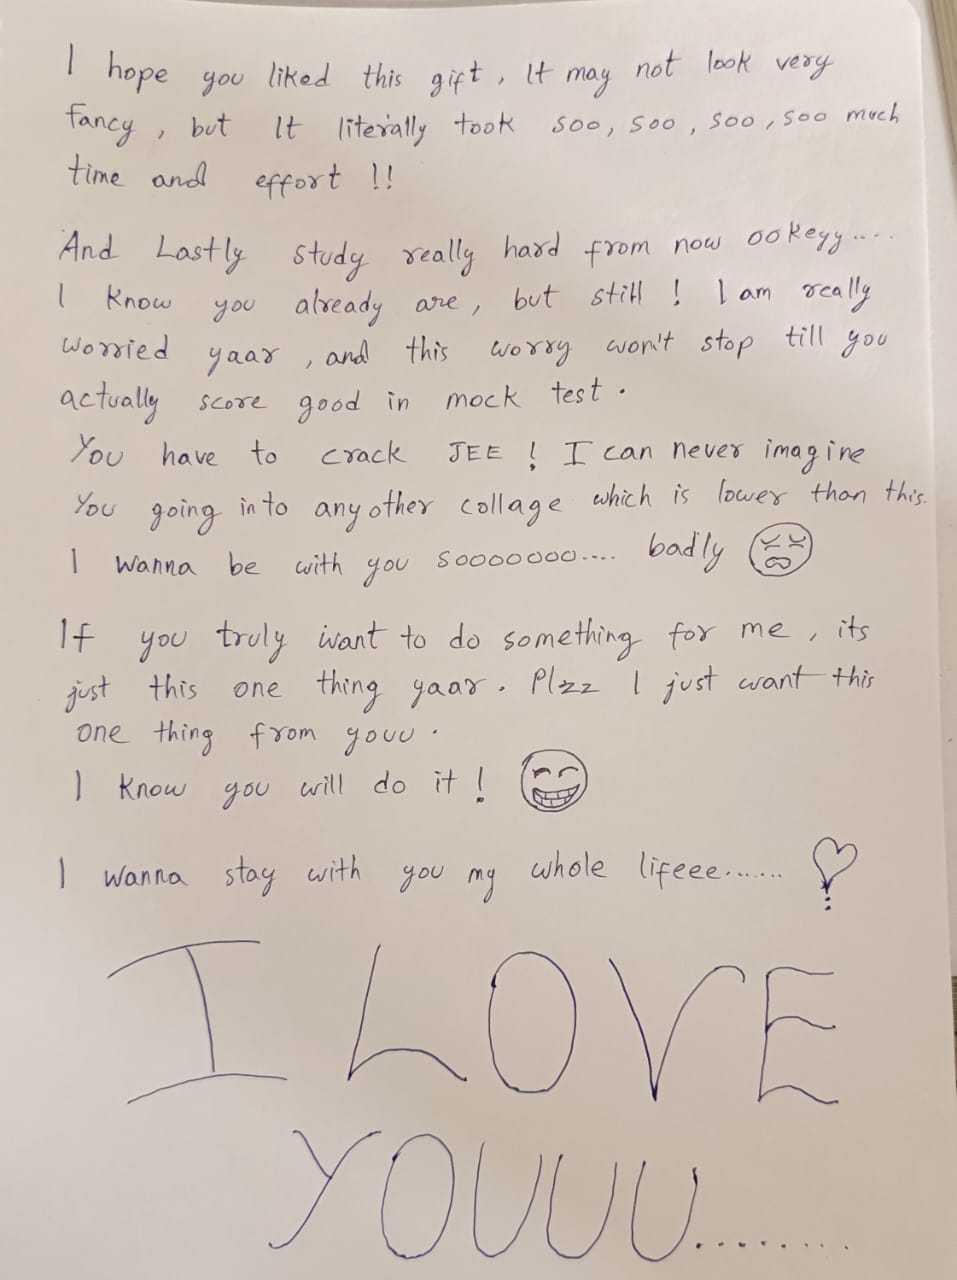 I hope you liked this gift, It may not look very
fancy, but It literally took soo, soo, soo, soo much
time and effort !!
And Lastly study really hard from now ookeyy....
I know you already are, but still ! I am really
worried yaar, and this worry won't stop till you
actually score good in mock test.
You have to crack JEE ! I can never imagine
You going into any other collage which is lower than this.
I wanna be with you sooooooo.... badly
If you truly want to do something for me, its
just this one thing yaar. Plzz I just want this
one thing from youu.
I know you will do it !
I wanna stay with you my whole lifeee......
I LOVE
YOUUU........